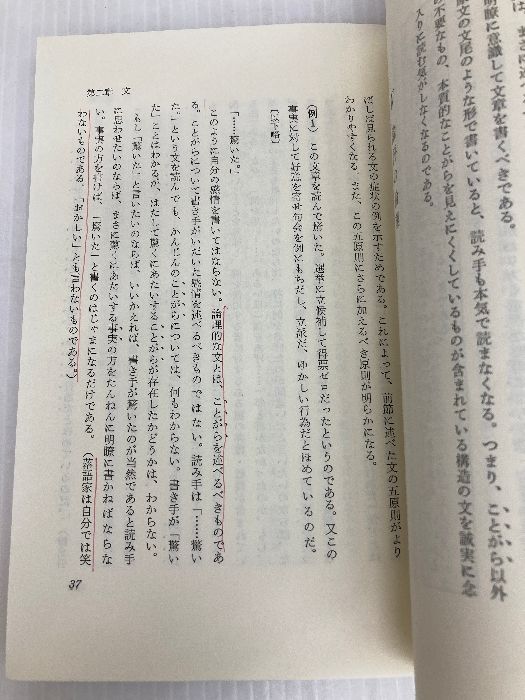 は、
明瞭に意識して文章を書くべきである。
原文の文尾のような形で書いていると、読み手も本気で読まなくなる。つまり、ことがら以外
の不要なもの、本質的なことがらを見えにくくしているものが含まれている構造の文を誠実に念
入りに読む気がしなくなるのである。
しば見られる文の症状の例を示すためである。これによって、前節に述べた文の五原則がより
わかりやすくなる。また、この五原則にさらに加えるべき原則が明らかになる。
（例１） この文章を読んで驚いた。選挙に立候補して得票ゼロだったというのである。又この
事実に対して好意を寄せ句会を例にもちだし、立派だ、ゆかしい行為だとほめているのだ。
〔以下略〕
「……驚いた。」
このように自分の感情を書いてはならない。論理的な文とは、ことがらを述べるべきものであ
る。ことがらについて書き手がいだいた感情を述べるべきものではない。読み手は「……驚い
た。」という文を読んでも、かんじんのことがらについては、何もわからない。書き手が「驚い
た」ことはわかるが、はたして驚くにあたいすることがらが存在したかどうかは、わからない。
もし「驚いた」と言いたいのならば、いいかえれば、書き手が驚いたのが当然であると読み手
に思わせたいのならば、まさに驚くにあたいする事実の方をたんねんに明瞭に書かねばならな
い。事実の方を書けば、「驚いた」と書くのはじゃまになるだけである。（落語家は自分では笑
わないものである。「おかしい」とも言わないものである。）
第二章 文
37